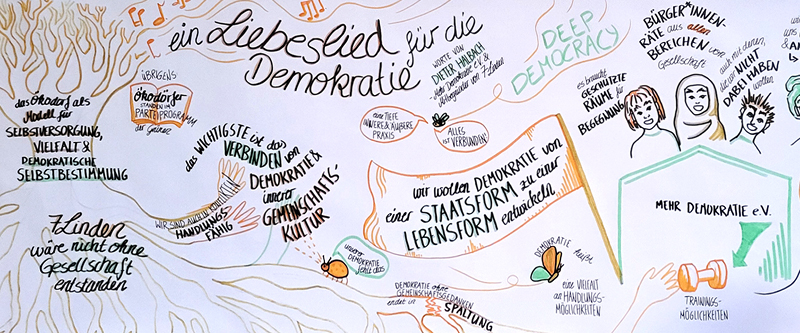 ein Liebeslied für die
Demokratie
WORTE VON
DIETER HALBACH
Mehr Demokratie e.V. &
Mitbegründer von 7 Linden
DEEP
DEMOCRACY
BÜRGER*INNEN-
RÄTE aus allen
BEREICHEN der
Gesellschaft
auch mit denen,
die wir NICHT
DABEI HABEN
wollen
es braucht
GESCHÜTZTE
RÄUME für
BEGEGNUNG
das Ökodorf als
Modell für
SELBSTVERSORGUNG,
VIELFALT &
DEMOKRATISCHE
SELBSTBESTIMMUNG
ÜBRIGENS
Ökodörfer
STANDEN IM
PARTEIPROGRAMM
der Grünen
das WICHTIGSTE ist das
VERBINDEN von
DEMOKRATIE &
innerer
GEMEINSCHAFTS-
KULTUR
eine TIEFE
INNERE & ÄUßERE
PRAXIS
ALLES
IST VERBUNDEN
wir wollen DEMOKRATIE von
einer STAATSFORM zu einer
LEBENSFORM entwickeln
WIR SIND AUCH IN
HANDLUNGS-
FÄHIG
7 Linden
wäre nicht ohne
Gesellschaft
entstanden
unserer
DEMOKRATIE
fehlt das
DEMOKRATIE ohne
GEMEINSCHAFTSGEDANKEN
endet in
SPALTUNG
DEMOKRATIE heißt
eine VIELFALT
an HANDLUNGS-
MÖGLICHKEITEN
MEHR DEMOKRATIE e.V.
TRAININGS-
MÖGLICHKEITEN